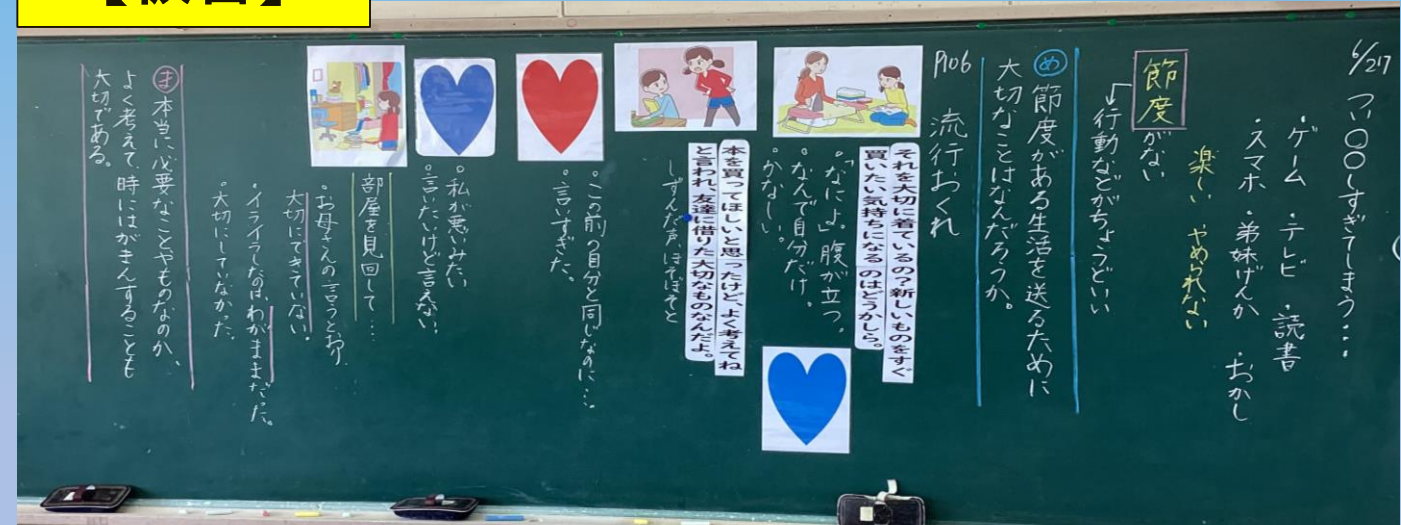 【板書】
6/27
つい〇〇しすぎてしまう・・・
・ゲーム ・テレビ ・読書
・スマホ ・弟妹げんか ・おかし
楽しい やめられない
節度がない
行動などがちょうどいい
め 節度がある生活を送るために
大切なことはなんだろうか。
P106 流行おくれ
それを大切に着ているの?新しいものをすぐ
買いたい気持ちになるのはどうかしら。
。「なによ。」腹が立つ。
。なんで自分だけ。
。かなしい。
本を買ってほしいと思ったけど、よく考えてね
と言われ、友達に借りた大切なものなんだよ。
しずんだ声、ぼそぼそと
。この前の自分と同じなのに・・・。
。言いすぎた。
。私が悪いみたい
。言いたいけど言えない。
部屋を見回して・・・
。お母さんの言うとおり
大切にできていない。
。イライラしたのは、わがままだった。
。大切にしていなかった。
ま 本当に必要なことやものなのか、
よく考えて、時にはがまんすることも
大切である。